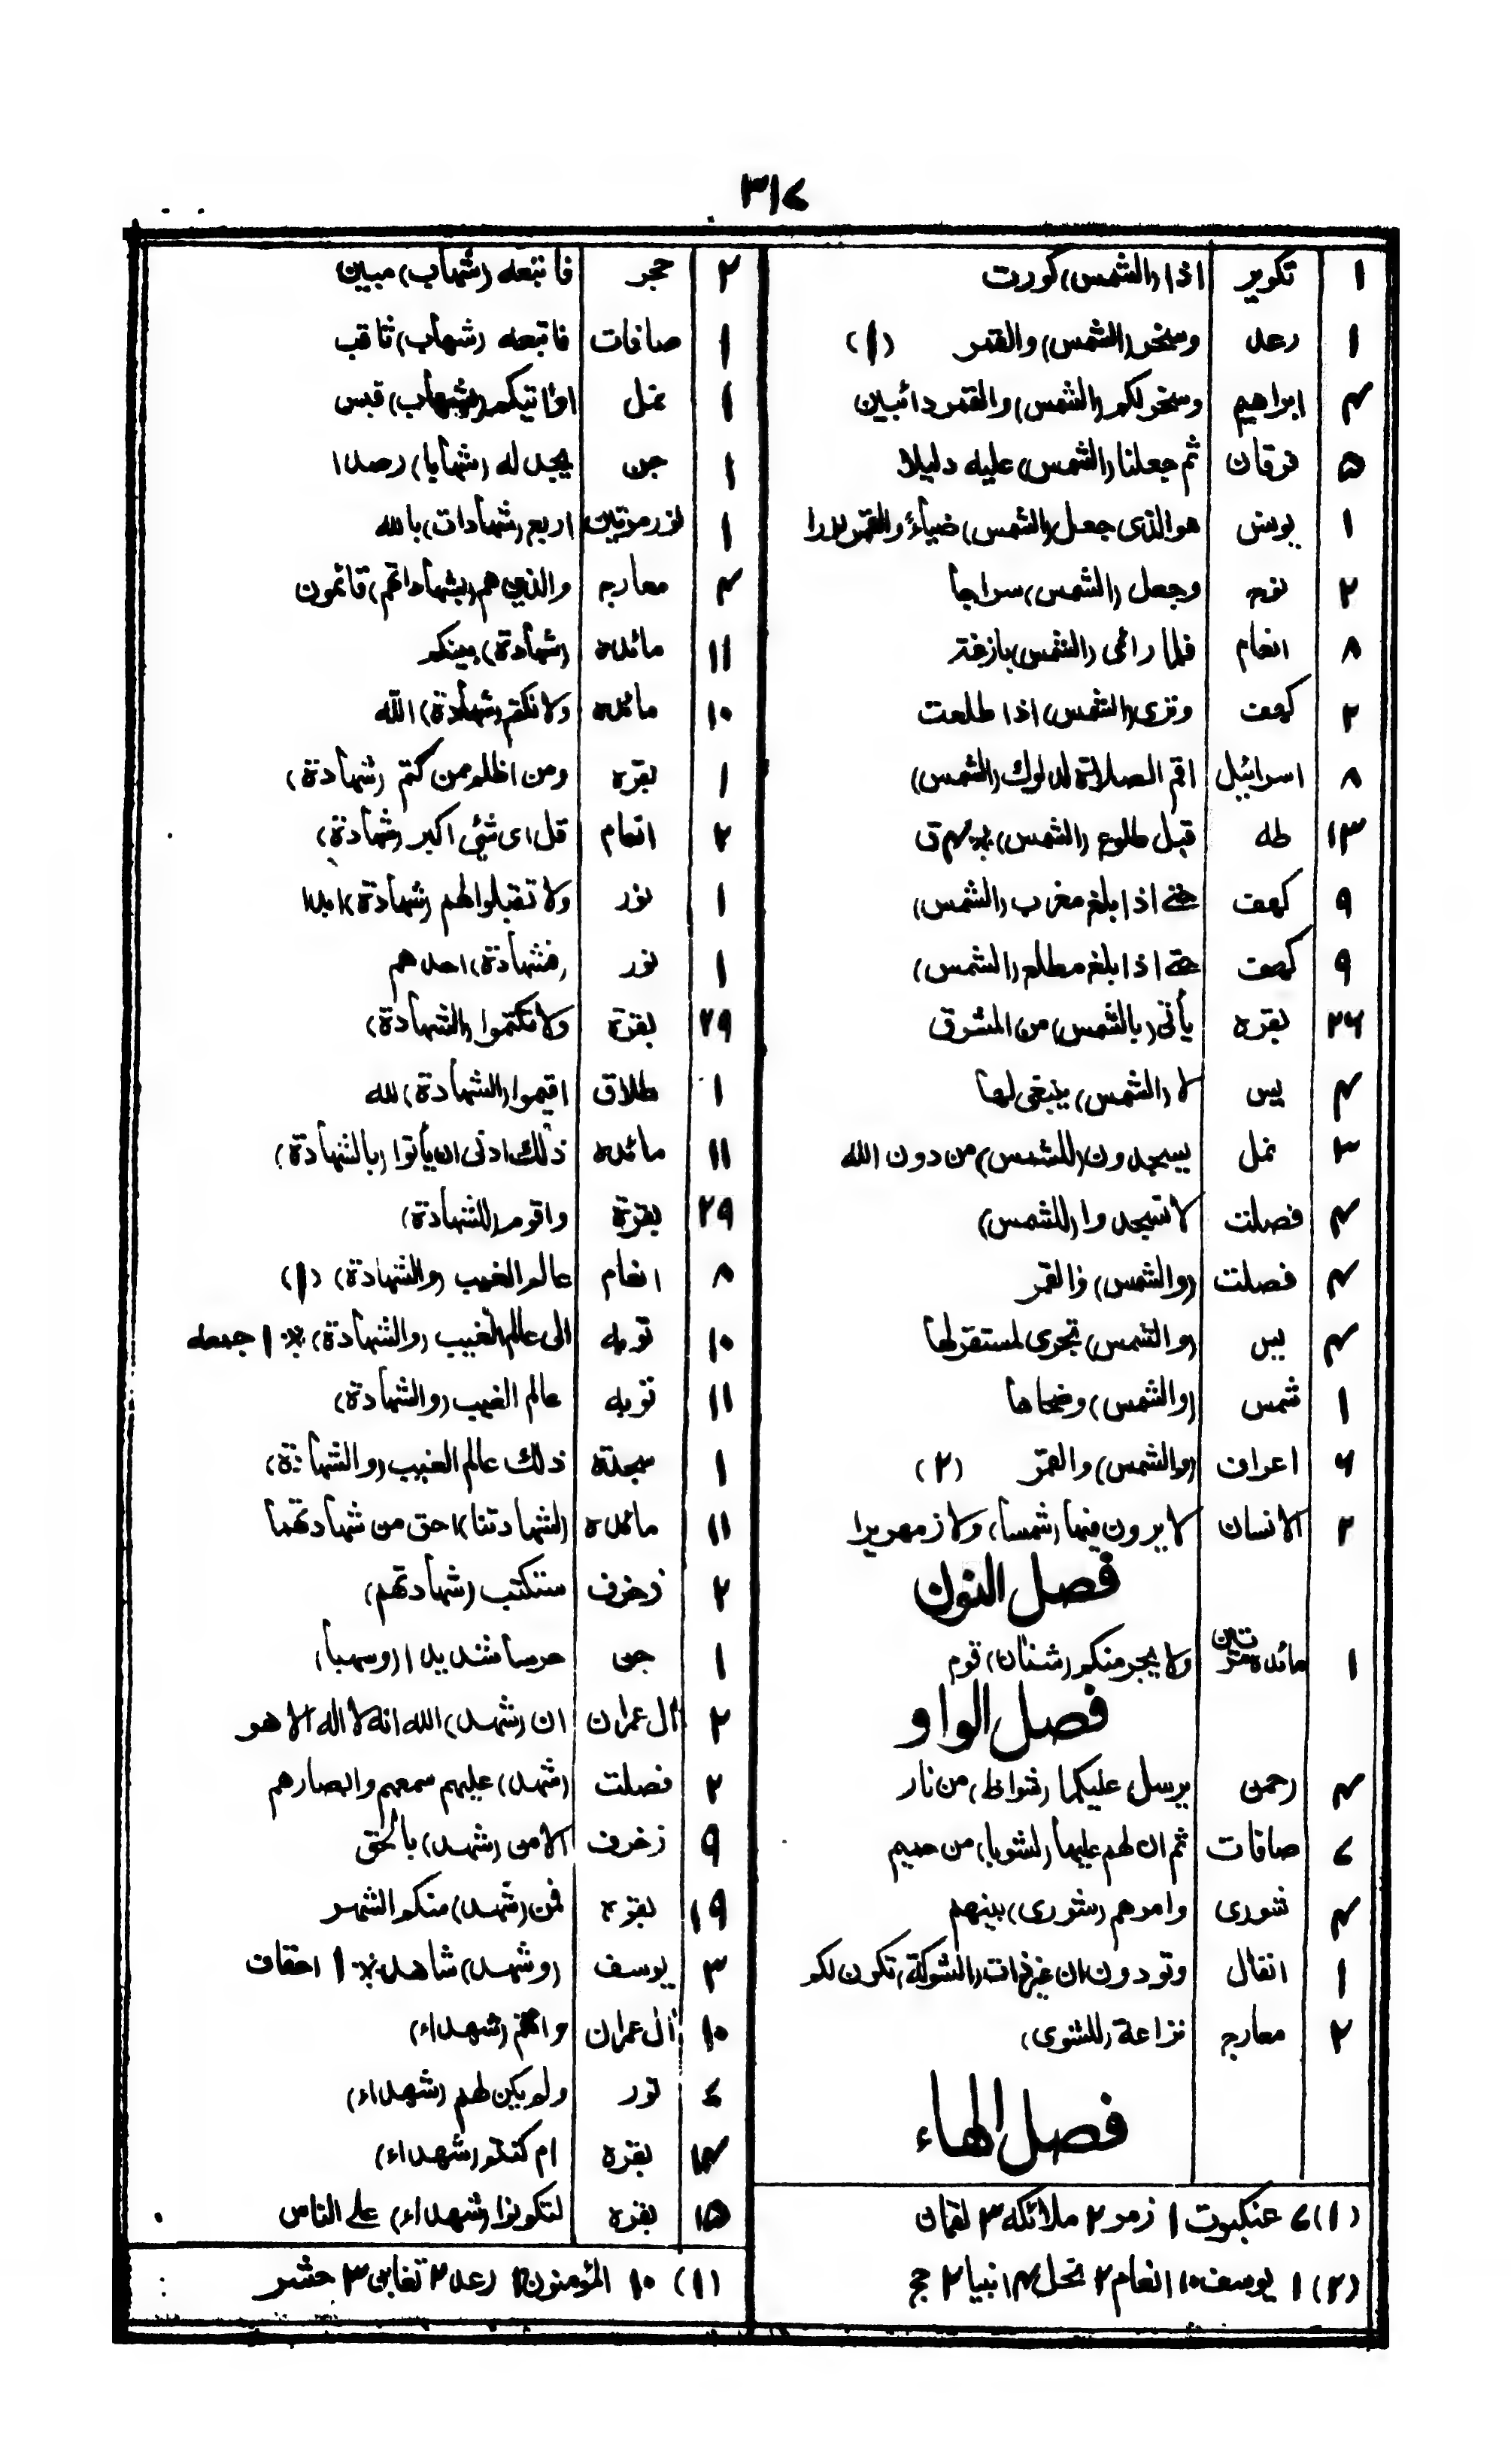 ٣١٧
١ تكوير اذا (الشمس) كورت
١ رعد وسخر (الشمس) والقمر (١)
٤ ابراهيم وسخر لكم (الشمس) والقمر دائبين
٥ فرقان ثم جعلنا (الشمس) عليه دليلا
١ يونس هو الذى جعل (الشمس) ضياءً والقمر نورا
٢ نوح وجعل (الشمس) سراجاً
٨ انعام فلما رائى (الشمس) بازغة
٢ كهف وترى (الشمس) اذا طلعت
٨ اسرائيل اقم الصلاة لدلوك (الشمس)
١٣ طه قبل طلوع (الشمس) ٪ ٤ ق
٩ كهف حتى اذا بلغ مغرب (الشمس)
٩ كهف حتى اذا بلغ مطلع (الشمس)
٢٦ بقره يأتى (بالشمس) من المشرق
٤ يس لا (الشمس) ينبغى لها
٣ نمل يسجدون (للشمس) من دون الله
٤ فصلت لا تسجدوا (للشمس)
٤ فصلت (والشمس) والقمر
٤ يس (والشمس) تجرى لمستقر لها
١ شمس (والشمس) وضحاها
٦ اعراف (والشمس) والقمر (٢)
٢ الانسان لا يرون فيها (شمساً) ولا زمهريرا
فصل النون
١ مائده مرتين ولا يجرمنكم (شنئان) قوم
فصل الواو
٤ رحمن يرسل عليكما (شواظ) من نار
٧ صافات ثم ان لهم عليها (لشوبا) من حميم
٤ شورى وامرهم (شورى) بينهم
١ انفال وتودون ان غير ذات (الشوكة) تكون لكم
٢ معارج نزاعة (للشوى)
فصل الهاء
(١) ٧ عنكبوت ١ زمر ٢ ملائكه ٣ لقمان
(٢) ١ يوسف ١٠ انعام ٢ نحل ٤ انبيا ٢ حج
٢ حجر فاتبعه (شهاب) مبين
١ صافات فاتبعه (شهاب) ثاقب
١ نمل او اتيكم (بشهاب) قبس
١ جن يجد له (شهابا) رصدا
١ نور مرتين اربع (شهادات) بالله
٤ معارج والذين هم (بشهاداتهم) قائمون
١١ مائده (شهادة) بينكم
١٠ مائده ولا نكتم (شهادة) الله
١ بقره ومن اظلم ممن كتم (شهادة)
٢ انعام قل اى شئى اكبر (شهادة)
١ نور ولا تقبلوا لهم (شهادة) ابدا
١ نور (فشهادة) احدهم
٢٩ بقرة ولا تكتموا (الشهادة)
١ طلاق اقيموا (الشهادة) لله
١١ مائده ذلك ادنى ان يأتوا (بالشهادة)
٢٩ بقرة واقوم (للشهادة)
٨ انعام عالم الغيب (والشهادة) (١)
١٠ توبه الى عالم الغيب (والشهادة) ٪ ١ جمعه
١١ توبه عالم الغيب (والشهادة)
١ سجدة ذلك عالم الغيب (والشهادة)
١١ مائده (لشهادتنا) احق من شهادتهما
٢ زخرف ستكتب (شهادتهم)
١ جن حرسا شديدا (وشهبا)
٢ آل عمران ان (شهد) الله انه لا اله الا هو
٢ فصلت (شهد) عليهم سمعهم وابصارهم
٩ زخرف الا من (شهد) بالحق
١٩ بقره فمن (شهد) منكم الشهر
٣ يوسف (وشهد) شاهد ٪ ١ احقاف
١٠ آل عمران وانتم (شهداء)
٤ نور ولم يكن لهم (شهداء)
١٤ بقره ام كنتم (شهداء)
١٥ بقره لتكونوا (شهداء) على الناس
(١) ١٠ المؤمنون ٢ رعد ٢ تغابن ٣ حشر